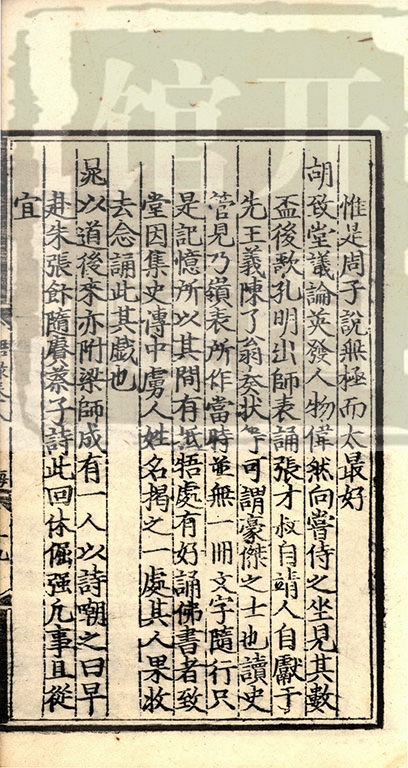 惟是周子說無極而太最好
胡致堂議論英發人物偉然向嘗侍之坐見其數
盃後歌孔明出師表誦張才叔自靖人自獻于
先王義陳了翁奏狀等可謂豪傑之士也讀史
管見乃嶺表所作當時並無一冊文字隨行只
是記憶所以其間有抵牾處有好誦佛書者致
堂因集史傳中虜人姓名揭之一處其人果收
去念誦此其戲也
晁以道後來亦附梁師成有一人以詩嘲之曰早
赴朱張飰隨賡蔡子詩此回休倔强凡事且從
宜